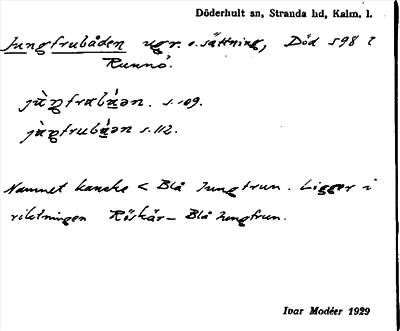 Döderhult sn, Stranda hd, Kalm. l.
Jungfrubåden ugr. o. sättning, Död 598 i
Runnö.
s. 109.
s. 112.
Namnet kanske < Blå Jungfrun. Ligger i
riktningen Röskär – Blå Jungfrun.
Ivar Modéer 1929